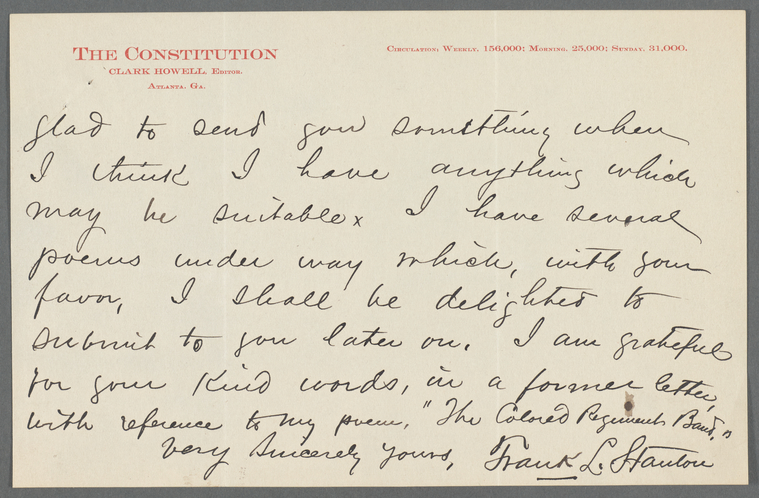 THE CONSTITUTION
CLARK HOWELL, EDITOR.
ATLANTA, GA.
CIRCULATION: WEEKLY, 156,000; MORNING, 25,000; SUNDAY, 31,000.
glad to send you something when
I think I have anything which
may be suitable x I have several
poems under way which, with your
favor, I shall be delighted to
submit to you later on. I am grateful
for your kind words, in a former letter,
with reference to my poem, "The Colored Regiment's Band."
Very Sincerely Yours, Frank L. Stanton